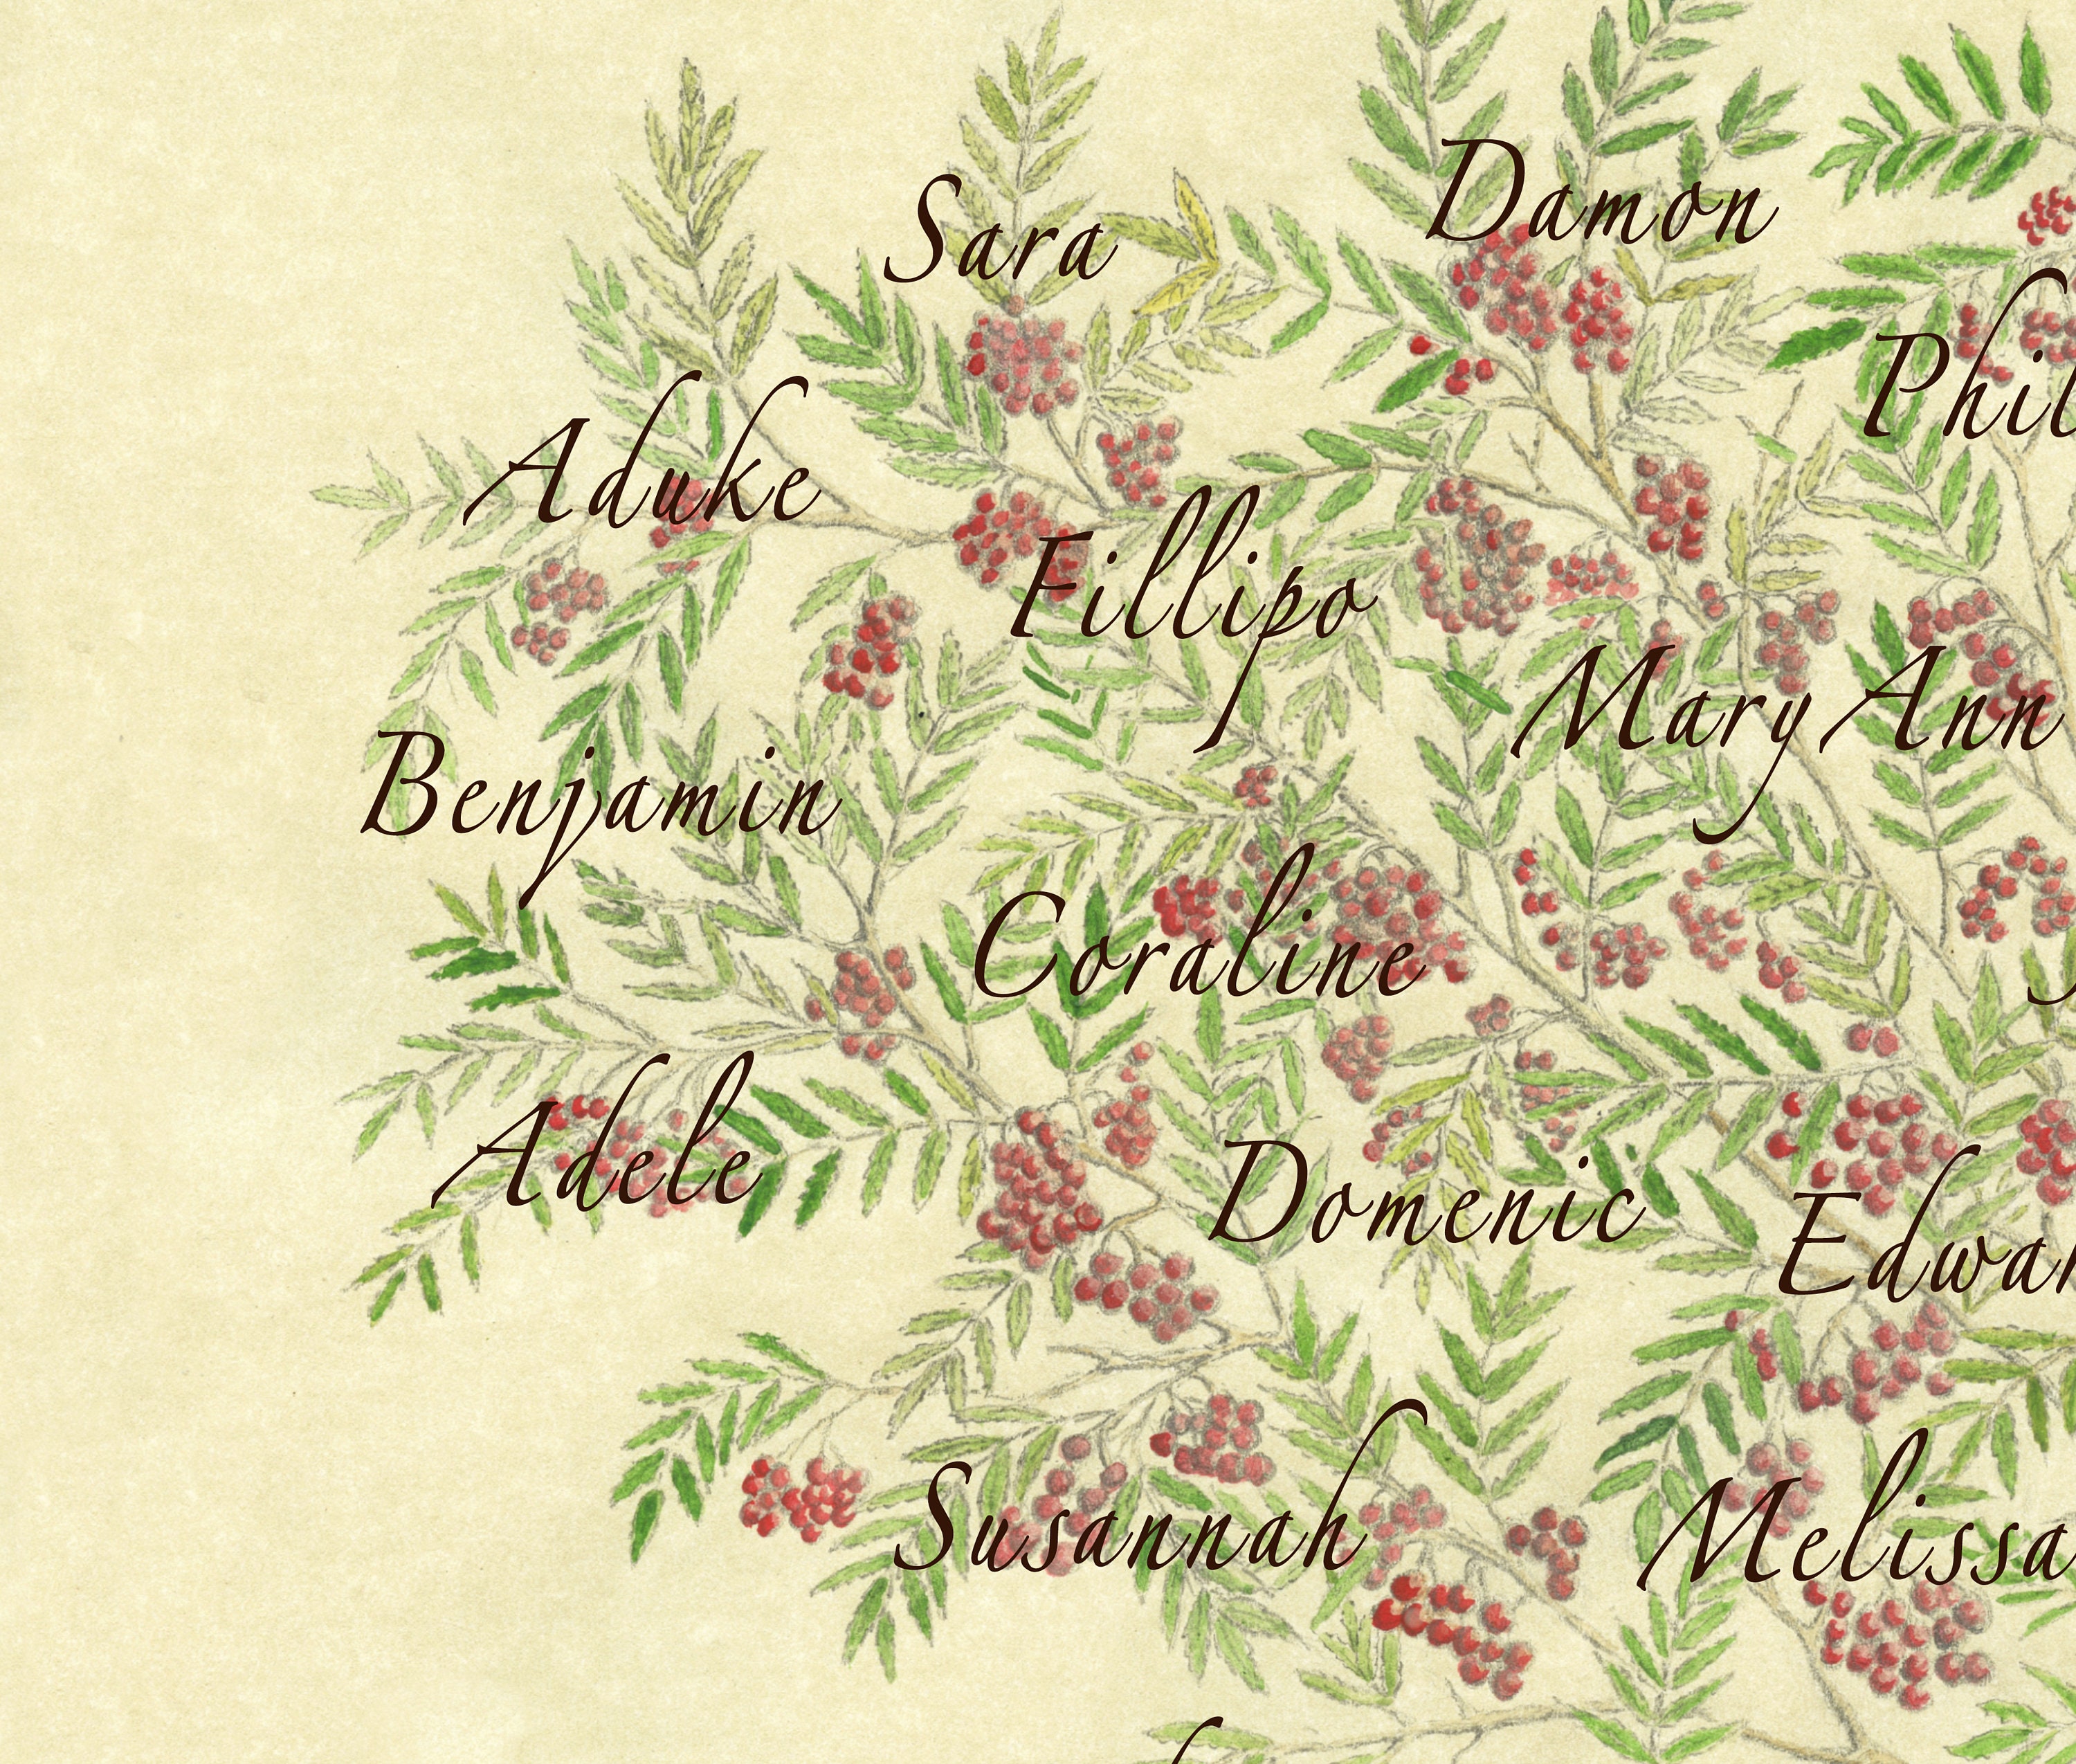 Damon
Sara
Phil
Aduke
Fillipo
Mary Ann
Benjamin
Coraline
Adele
Domenic
Edwar
Susannah
Melissa